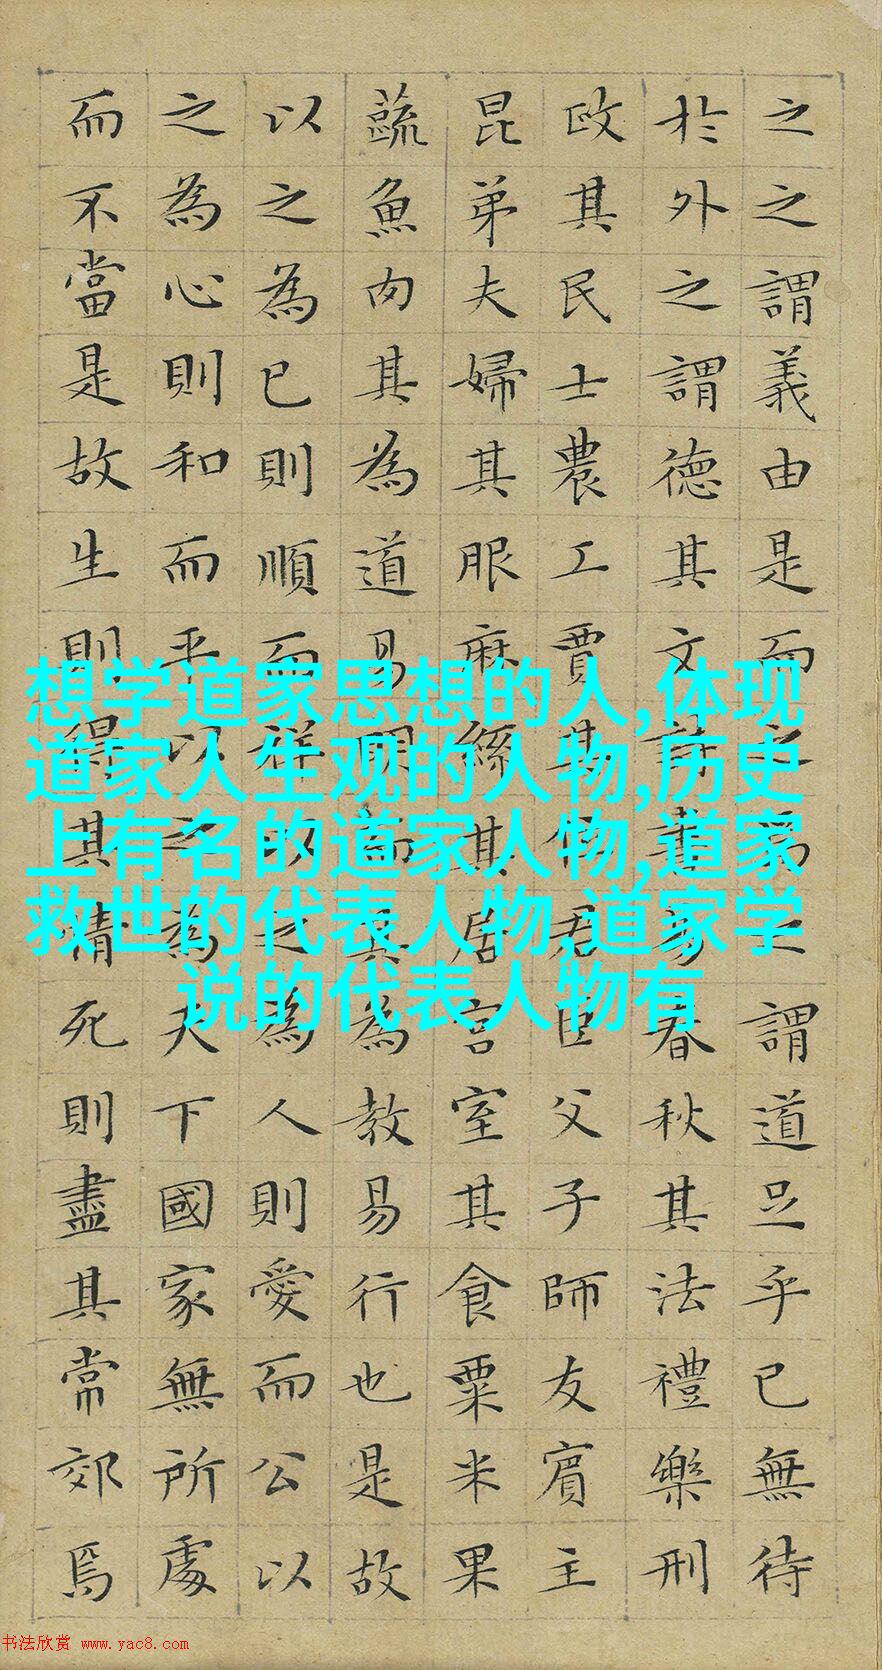 之之謂義由是而之焉之謂道足乎已無待
於外之謂德其文詩書易春秋其法禮樂刑
政其民士農工賈其位君臣父子師友賓主
昆弟夫婦其服麻絲其居宮室其食粟米果
蔬魚肉其為道易明而其為教易行也是故
以之為已則順而祥以之為人則愛而公以
之為心則和而平以之為天下國家無所處
而不當是故生則得其情死則盡其常郊焉
想学道家思想的人,体现
道家人生观的人物,历史
上有名的道家人物,道家
救世的代表人物,道家学
说的代表人物有
书法欣赏 www.yac8.com